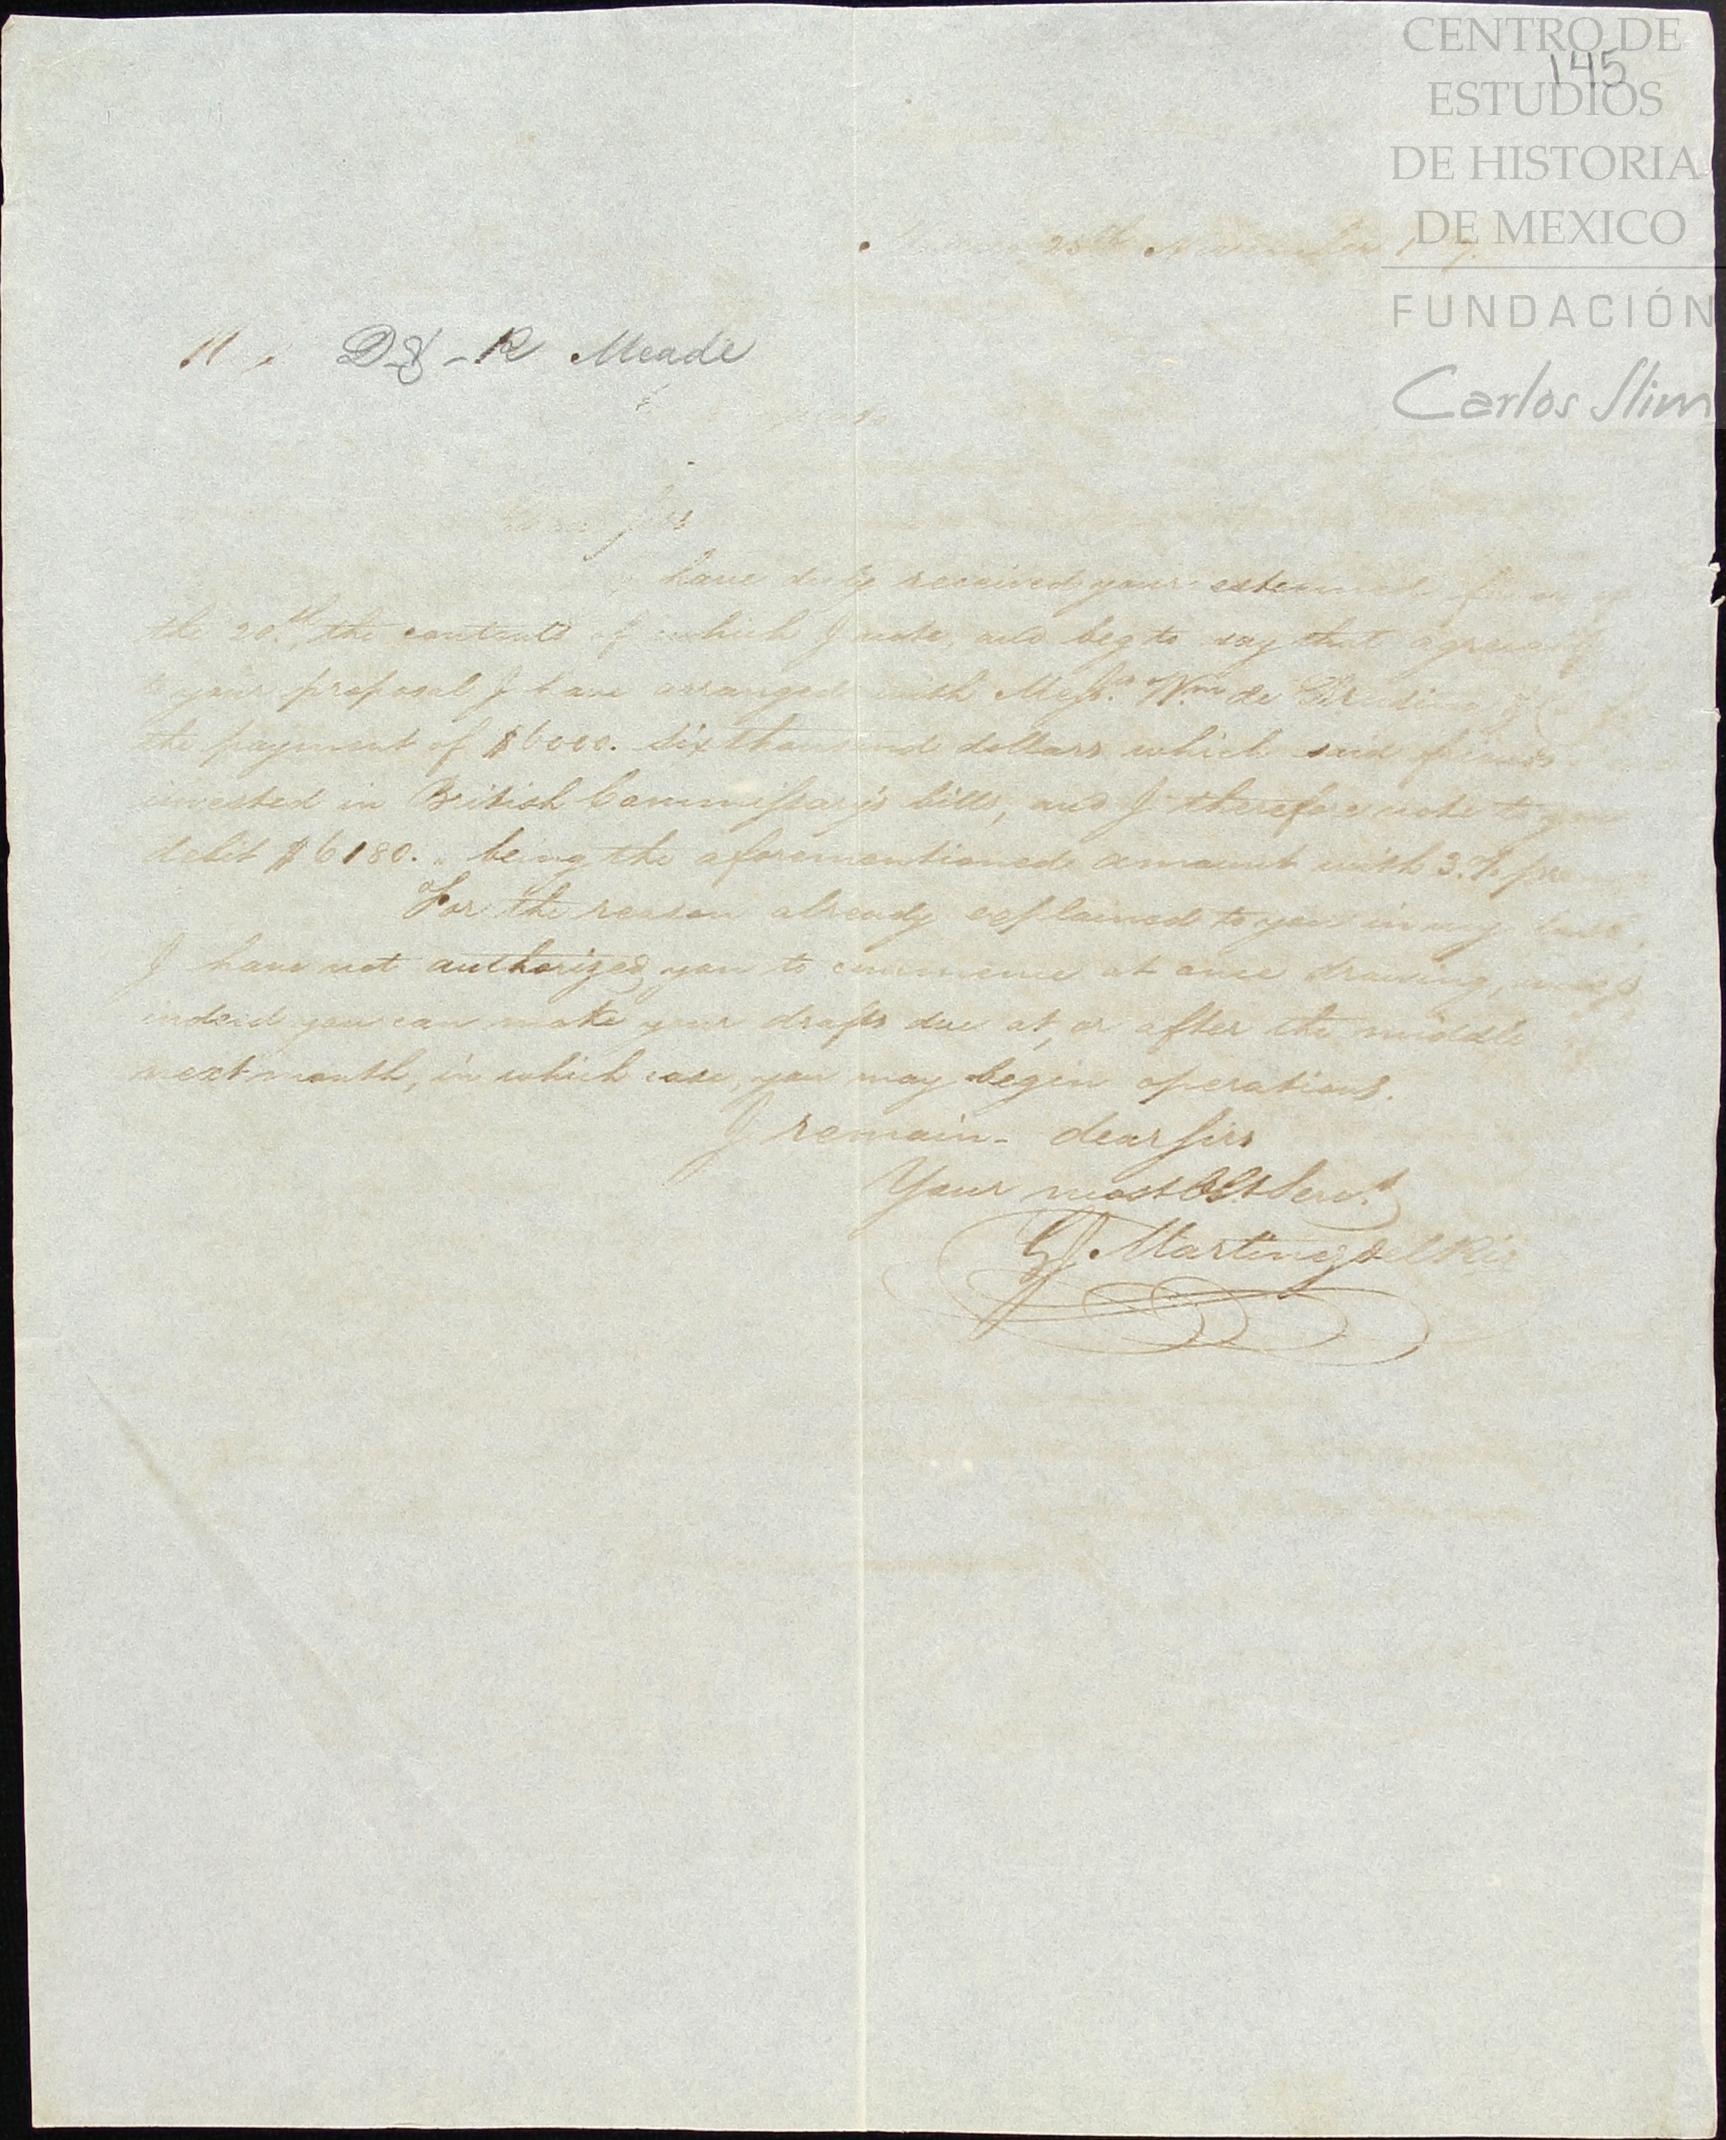 CENTRO DE
145
ESTUDIOS
DE HISTORIA
DE MEXICO
25th November
FUNDACIÓN
D & R Meade
Carlos Slim
have duly received your esteemed favor
the 20th, the contents of which I note, and beg to say that agreeably
to your proposal I have arranged with Messrs. Wm de & Co for
the payment of $6000. six thousand dollars which said friends
invested in British Commissary's bills, and I therefore note to your
debit $6180. „ being the aforementioned amount with 3.%
For the reason already explained to you in my last,
I have not authorized you to commence at once drawing, unless
indeed you can make your drafts due at, or after the middle
next month, in which case, you may begin operations.
I remain - dear sirs
Your most Obt Servt.
G J Martinez del Rio